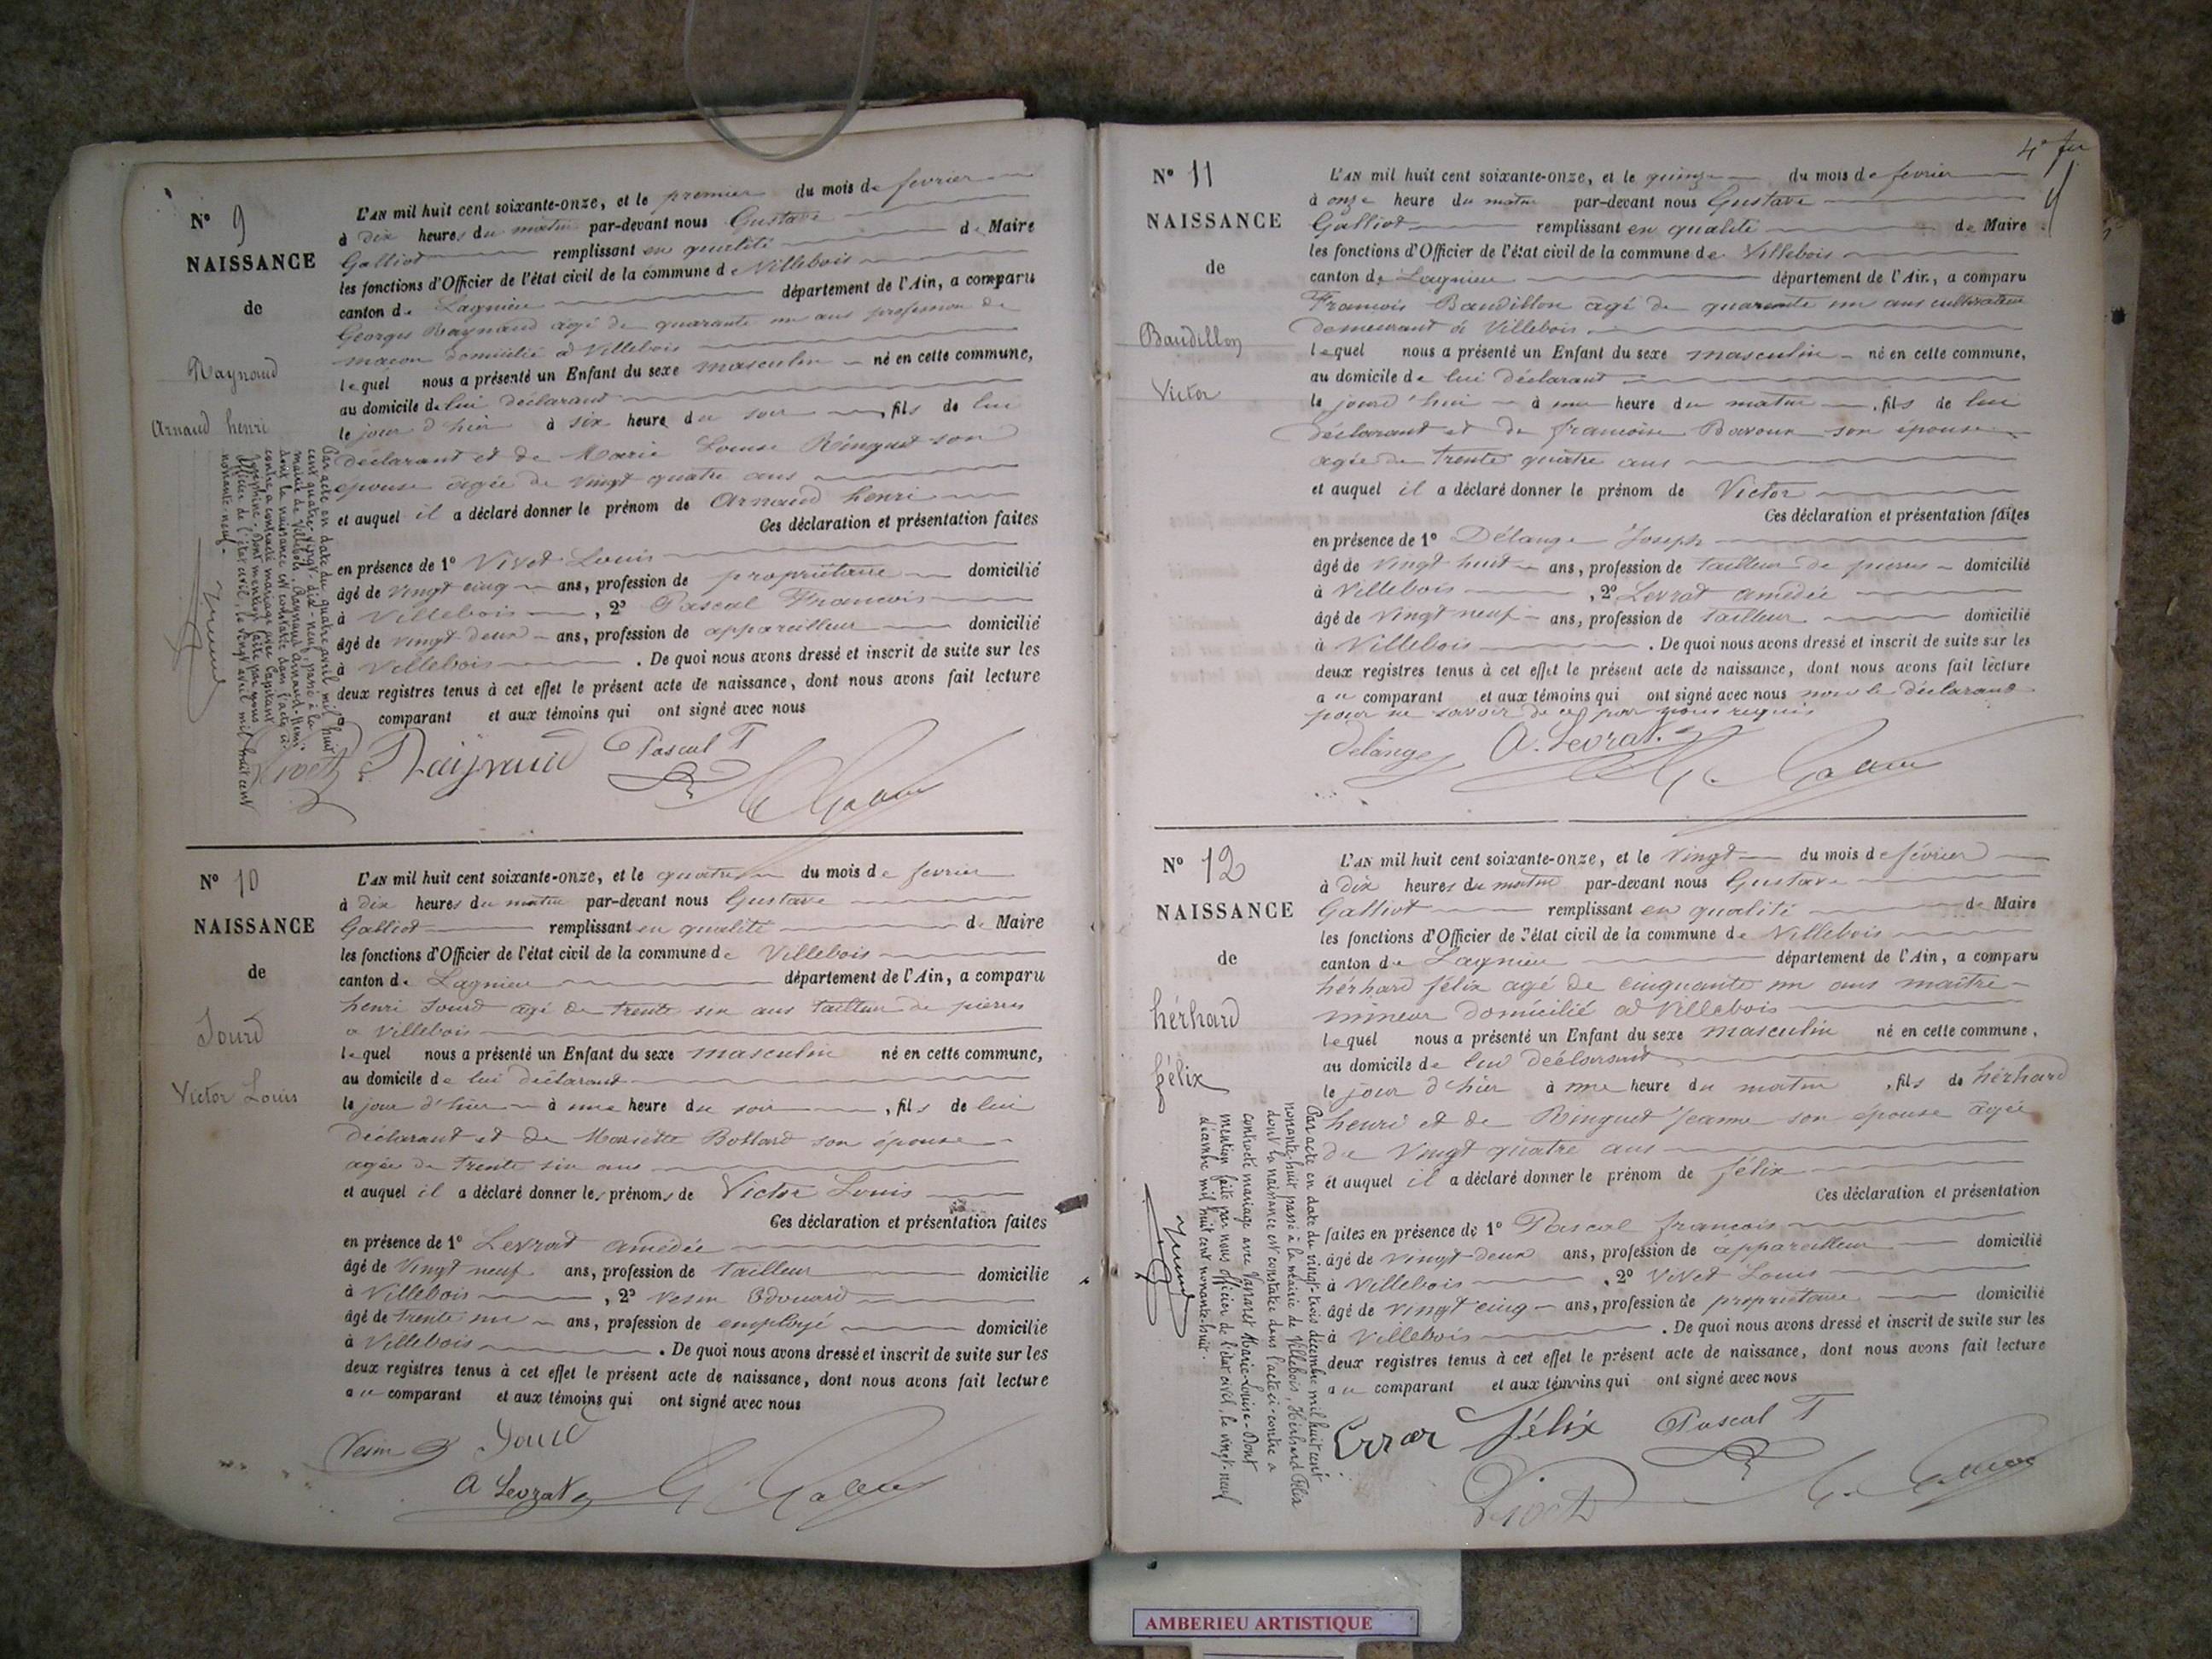 N° 9
NAISSANCE
de
Raynaud
Arnaud henri
L'AN mil huit cent soixante-onze, et le premier du mois de fevrier
à dix heures du matin par-devant nous Gustave
Galliot remplissant en qualité de Maire
les fonctions d'Officier de l'état civil de la commune de Villebois
canton de Lagnieu département de l'Ain, a comparu
Georges Raynaud agé de quarante un ans profession de
maçon domicilié à Villebois
lequel nous a présenté un Enfant du sexe masculin né en cette commune,
au domicile de lui déclarant
le jour d'hier à six heure du soir, fils de lui
déclarant et de Marie Louise Ringuet son
épouse agée de vingt quatre ans
et auquel il a déclaré donner le prénom de Arnaud henri
Ces déclaration et présentation faites
en présence de 1° Vivet Louis
âgé de vingt cinq ans, profession de propriétaire domicilié
à Villebois, 2° Pascal Francois
âgé de vingt deux ans, profession de appareilleur domicilié
à Villebois. De quoi nous avons dressé et inscrit de suite sur les
deux registres tenus à cet effet le présent acte de naissance, dont nous avons fait lecture
a comparant et aux témoins qui ont signé avec nous
Par acte en date du quatre avril mil huit
cent quatre-vingt-dix-neuf, passé à la
mairie de Villebois, Raynaud Arnaud-Henri
dont la naissance est constatée dans l'acte ci-
contre, a contracté mariage avec Capitant
Joséphine. Dont mention faite par nous
officier de l'état civil, le vingt avril mil huit cent
nonante-neuf.
Vivet Raynaud Pascal F
G. Galliot
N° 10
NAISSANCE
de
Jourd
Victor Louis
L'AN mil huit cent soixante-onze, et le quatre du mois de fevrier
à dix heures du matin par-devant nous Gustave
Galliot remplissant en qualité de Maire
les fonctions d'Officier de l'état civil de la commune de Villebois
canton de Lagnieu département de l'Ain, a comparu
henri Jourd agé de trente six ans tailleur de pierres
a Villebois
lequel nous a présenté un Enfant du sexe masculin né en cette commune,
au domicile de lui déclarant
le jour d'hier à une heure du soir, fils de lui
déclarant et de Mariette Bollard son épouse
agée de trente six ans
et auquel il a déclaré donner les prénoms de Victor Louis
Ces déclaration et présentation faites
en présence de 1° Levrat amédée
âgé de vingt neuf ans, profession de tailleur domicilié
à Villebois, 2° Vesin Edouard
âgé de trente un ans, profession de employé domicilié
à Villebois. De quoi nous avons dressé et inscrit de suite sur les
deux registres tenus à cet effet le présent acte de naissance, dont nous avons fait lecture
au comparant et aux témoins qui ont signé avec nous
Vesin E Jourd
A Levrat G. Galliot
4e fer
N° 11
NAISSANCE
de
Baudillon
Victor
L'AN mil huit cent soixante-onze, et le quinze du mois de fevrier
à onze heure du matin par-devant nous Gustave
Galliot remplissant en qualité de Maire
les fonctions d'Officier de l'état civil de la commune de Villebois
canton de Lagnieu département de l'Ain, a comparu
Francois Baudillon agé de quarante un ans cultivateur
demeurant à Villebois
lequel nous a présenté un Enfant du sexe masculin né en cette commune,
au domicile de lui déclarant
le jourd'hui à une heure du matin, fils de lui
déclarant et de francoise son épouse
agée de trente quatre ans
et auquel il a déclaré donner le prénom de Victor
Ces déclaration et présentation faites
en présence de 1° Délange Joseph
âgé de vingt huit ans, profession de tailleur de pierres domicilié
à Villebois, 2° Levrat amédée
âgé de vingt neuf ans, profession de tailleur domicilié
à Villebois. De quoi nous avons dressé et inscrit de suite sur les
deux registres tenus à cet effet le présent acte de naissance, dont nous avons fait lecture
au comparant et aux témoins qui ont signé avec nous non le déclarant
pour ne savoir de ce par nous requis
Délange A. Levrat
G. Galliot
N° 12
NAISSANCE
de
hérhard
félix
L'AN mil huit cent soixante-onze, et le vingt du mois de février
à dix heures du matin par-devant nous Gustave
Galliot remplissant en qualité de Maire
les fonctions d'Officier de l'état civil de la commune de Villebois
canton de Lagnieu département de l'Ain, a comparu
hérhard félix agé de cinquante un ans maître
mineur domicilié à Villebois
lequel nous a présenté un Enfant du sexe masculin né en cette commune,
au domicile de lui déclarant
le jour d'hier à une heure du matin, fils de hérhard
henri et de Ringuet Jeanne son épouse agée
de vingt quatre ans
et auquel il a déclaré donner le prénom de félix
Ces déclaration et présentation
faites en présence de 1° Pascal francois
âgé de vingt deux ans, profession de appareilleur domicilié
à Villebois, 2° Vivet Louis
âgé de vingt cinq ans, profession de propriétaire domicilié
à Villebois. De quoi nous avons dressé et inscrit de suite sur les
deux registres tenus à cet effet le présent acte de naissance, dont nous avons fait lecture
au comparant et aux témoins qui ont signé avec nous
Par acte en date du vingt-trois décembre mil huit cent
nonante-huit, passé à la mairie de Villebois, Hérhard Félix
dont la naissance est constatée dans l'acte ci-contre a
contracté mariage avec Marie-Louise. Dont
mention faite par nous officier de l'état civil, le vingt-neuf
décembre mil huit cent nonante-huit.
Errar félix Pascal F
Vivet G. Galliot
AMBERIEU ARTISTIQUE